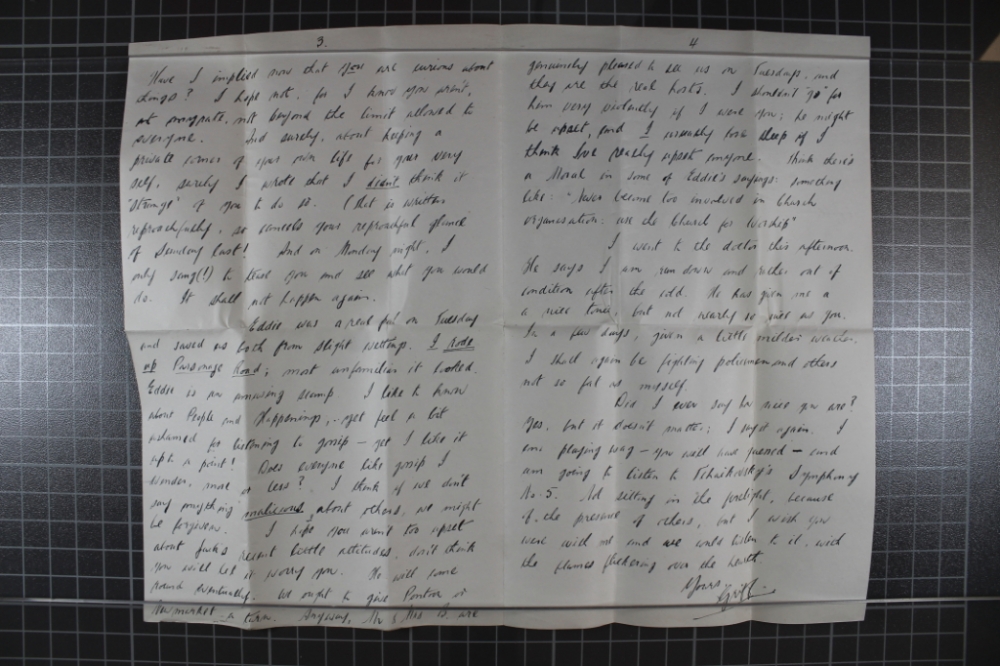 3.
Have I implied now that you are curious about
things? I hope not, for I know you aren't,
at any rate, not beyond the limit allowed to
everyone. And surely, about keeping a
private corner of your own life for your very
self, surely I wrote that I didn't think it
"strange" of you to do so. (this is written
reproachfully, so cancels your reproachful glance
of Sunday last! And on Monday night, I
only sang(!) to tease you and see what you would
do. It shall not happen again.
Eddie was a real pal on Tuesday
and saved us both from slight wettings. I rode
up Parsonage Road; most unfamiliar it looked.
Eddie is an amusing scamp. I like to know
about People and Happenings, - yet feel a bit
ashamed for listening to gossip - yet I like it
up to a point! Does everyone like gossip I
wonder, more or less? I think if we don't
say anything malicious, about others, we might
be forgiven. I hope you aren't too upset
about recent little attitudes, don't think
you will let it worry you. He will come
round eventually. We ought to give or
Newmarket a turn. Anyway, Mr & Mrs B. are
4
genuinely pleased to see us on Tuesdays, and
they are the real hosts. I shouldn't "go" for
him very violently if I were you; he might
be upset, and I usually lose sleep if I
think I've really upset anyone. Think there's
a Moral in some of Eddie's sayings: something
like: "Never become too involved in Church
organisation: use the Church for worship"
I went to the doctor this afternoon.
He says I am run down and rather out of
condition after the cold. He has given me a
a nice tonic, but not nearly so nice as you.
In a few days, given a little milder weather,
I shall again be fighting policemen and others
not so fat as myself.
Did I ever say how nice you are?
Yes, but it doesn't matter; I say it again. I
am playing wag - you well had guessed - and
am going to listen to Tchaikovsky's Symphony
No. 5. Not sitting in the firelight, because
of the presence of others, but I wish you
were with me and we could listen to it, with
the flames flickering over the hearth.
Yours